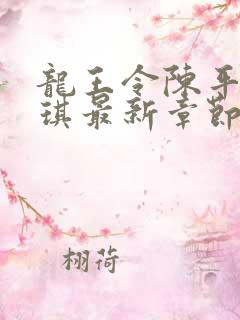 龍王令陳平
琪最新章節
栩荷